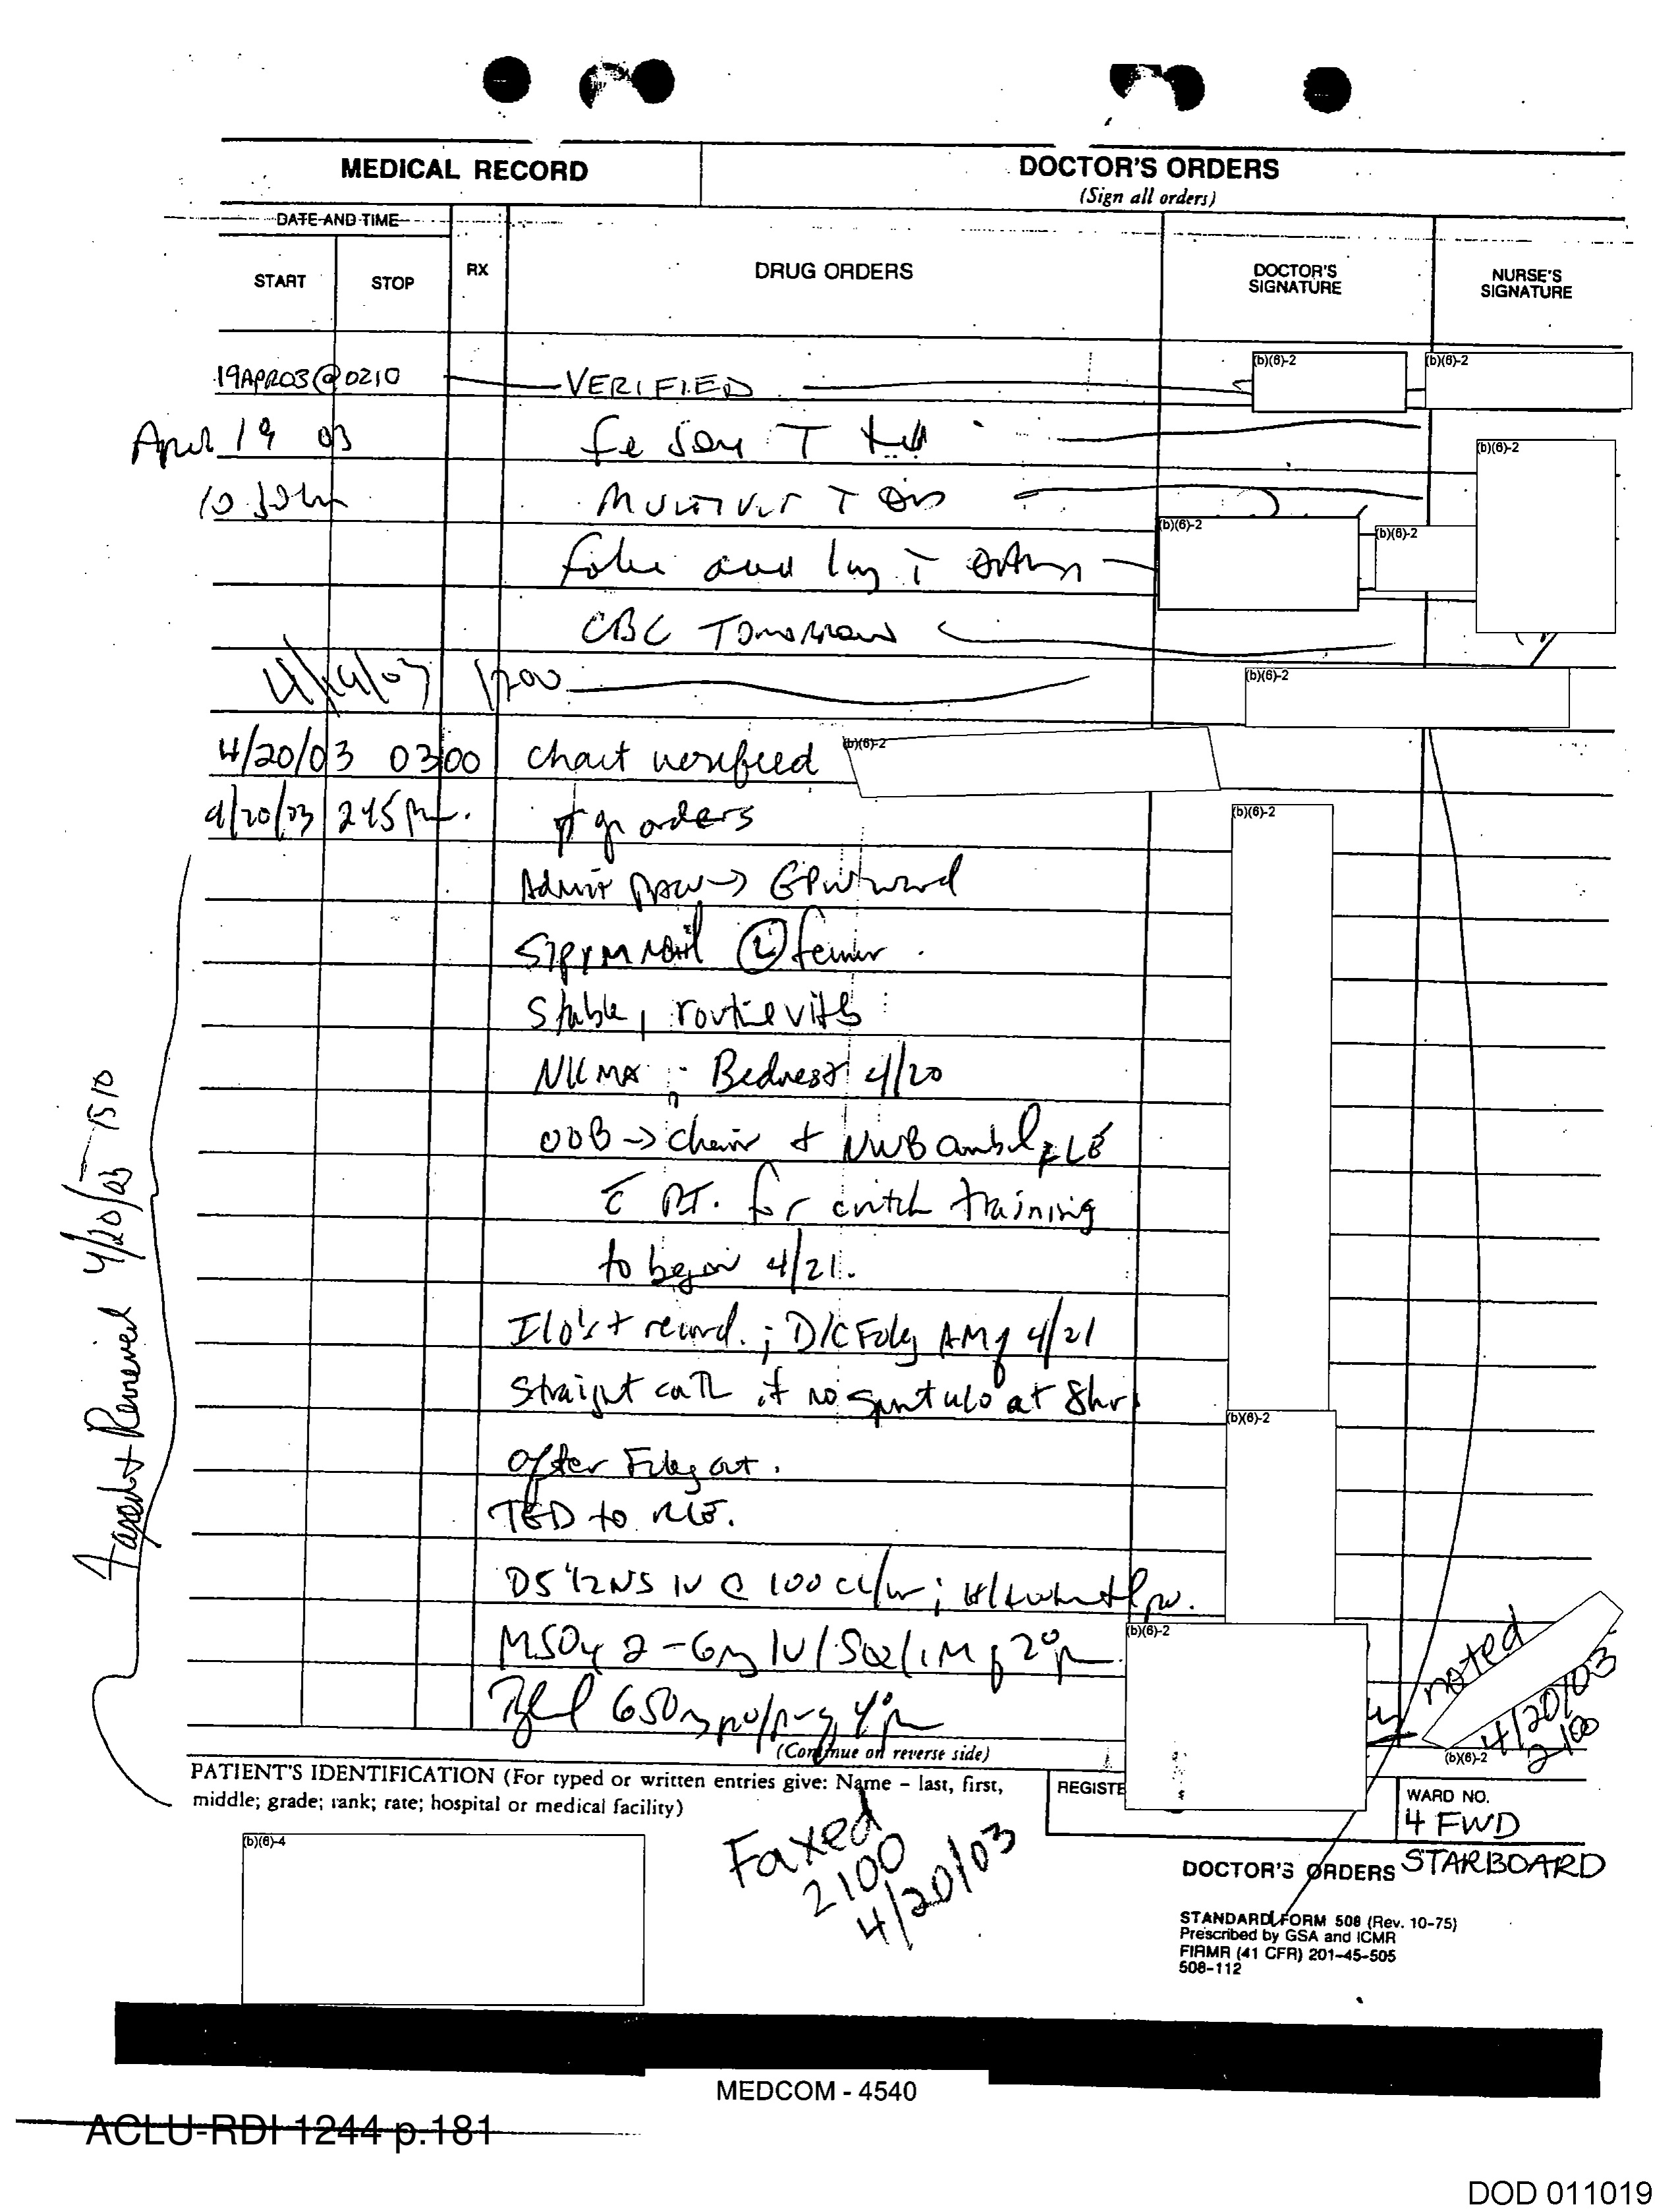 MEDICAL RECORD
DOCTOR'S ORDERS
(Sign all orders)
DATE AND TIME
START
STOP
RX
DRUG ORDERS
DOCTOR'S SIGNATURE
NURSE'S SIGNATURE
19APR03@0210 VERIFIED (b)(6)-2 (b)(6)-2
April 19 03 (b)(6)-2
(b)(6)-2 (b)(6)-2
CBC Tomorrow
1700 (b)(6)-2
4/20/03 0300 Chart verified (b)(6)-2
4/20/03 245 pm. orders (b)(6)-2
Admit → ward
S/P IM Nail Ⓛ femur.
Stable, routine vitls
NKMA; Bedrest 4/20
OOB → chair + NWB ambul LLE
c̄ PT. for crutch training
to begin 4/21.
I/O's + record.; D/C Foley AM of 4/21
straight cath if no spont u/o at 8hr. (b)(6)-2
after Foley out.
TED to RLE.
D5 1/2NS IV @ 100 cc/hr;
MSO4 2-6mg IV/SQ/IM q 2° (b)(6)-2
650mg po/pr q 4°
noted
4/20/03
2100
(b)(6)-2
4/20/03 1510
(Continue on reverse side)
PATIENT'S IDENTIFICATION (For typed or written entries give: Name – last, first,
middle; grade; rank; rate; hospital or medical facility)
REGISTE
WARD NO.
4 FWD
STARBOARD
(b)(6)-4
Faxed
2100
4/20/03
DOCTOR'S ORDERS
STANDARD FORM 508 (Rev. 10-75)
Prescribed by GSA and ICMR
FIRMR (41 CFR) 201-45-505
508-112
MEDCOM - 4540
ACLU-RDI 1244 p.181
DOD 011019